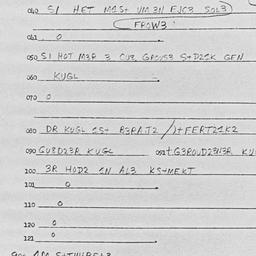 040 SI HET M1S+ VM3N EJC3 SOL3
FROW3
041 0
050 SI HOT M3R 3 CU3 GROUS3 S+D21K GEN
060 KUGL
070 0
080 DR KUGL 1S+ R3RAT2 /1+FERT21K2
090 GUBD23R KUGL 091 +G3ROUD23N3R KU
100 3R HOD2 1N AL3 KS+MEKT
101 0
110 0
120 0
121 0